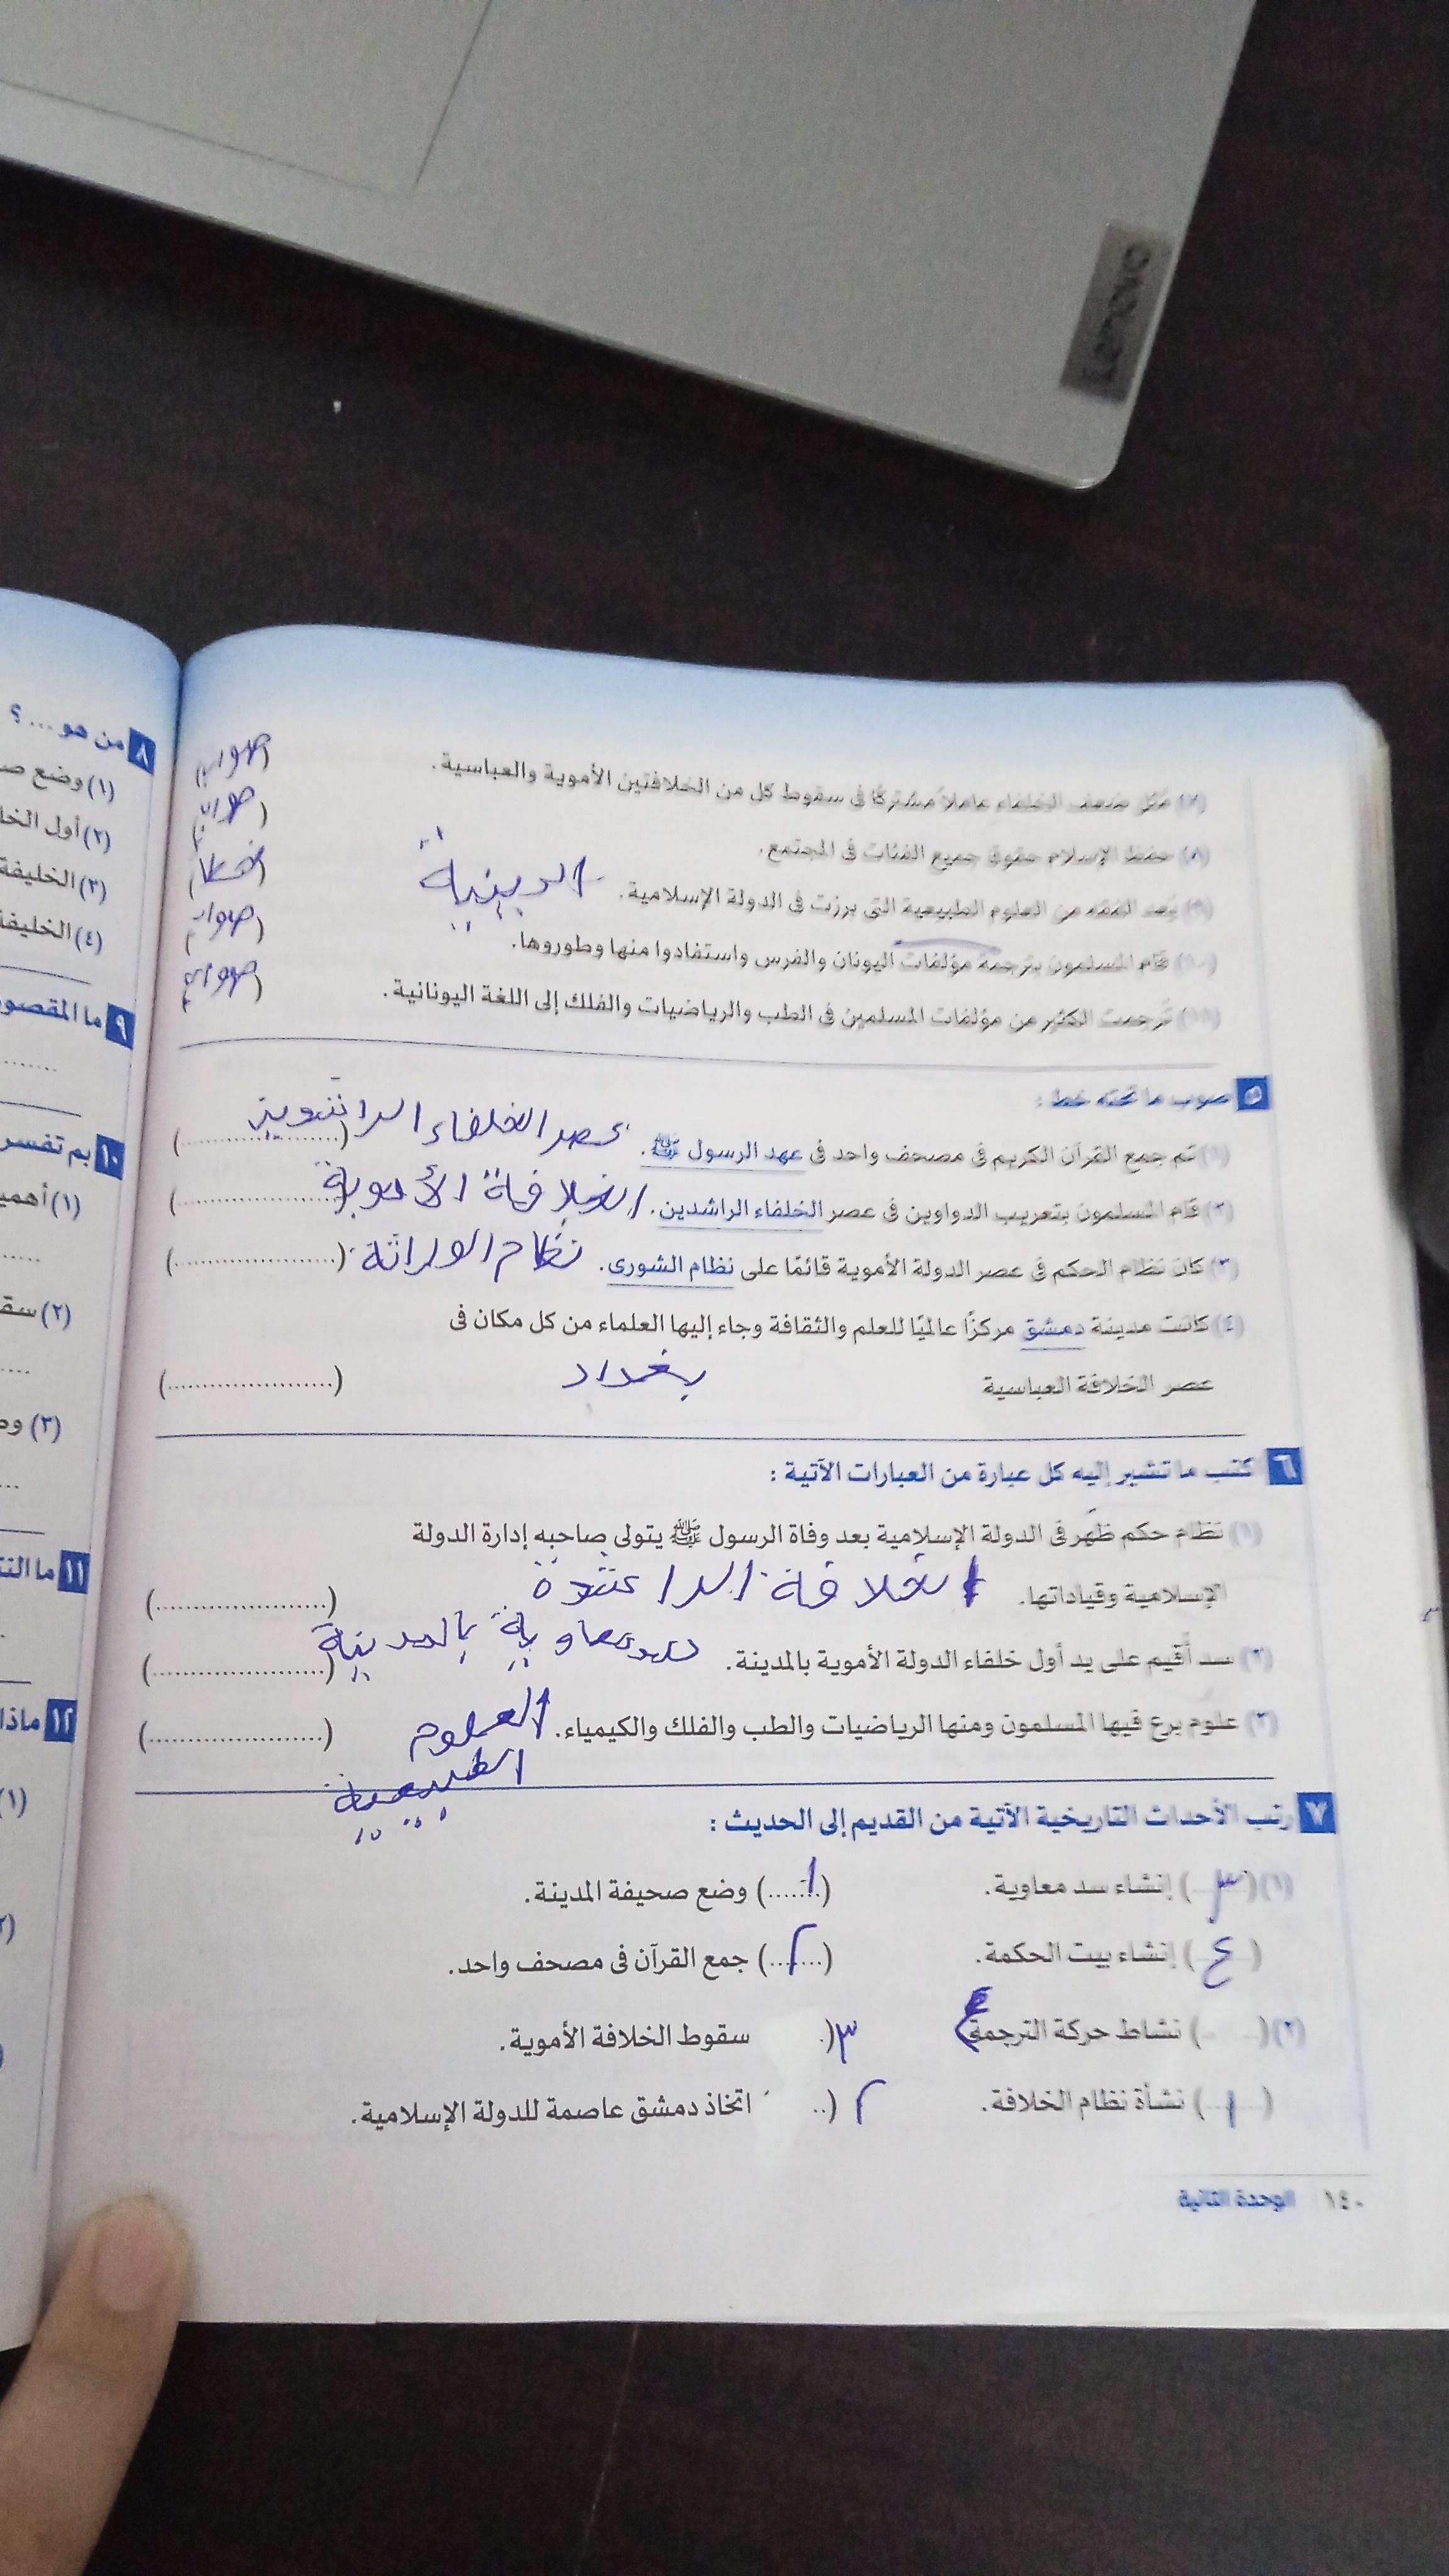 Lenovo
(٧) مثل ضعف الخلفاء عاملاً مشتركًا فى سقوط كل من الخلافتين الأموية والعباسية. (صواب)
(٨) حفظ الإسلام حقوق جميع الفئات فى المجتمع. (صواب)
(٩) يُعد الفقه من العلوم الطبيعية التى برزت فى الدولة الإسلامية. الدينية (خطأ)
(١٠) قام المسلمون بترجمة مؤلفات اليونان والفرس واستفادوا منها وطوروها. (صواب)
(١١) تُرجمت الكثير من مؤلفات المسلمين فى الطب والرياضيات والفلك إلى اللغة اليونانية. (صواب)
٥ صوب ما تحته خط :
(١) تم جمع القرآن الكريم فى مصحف واحد فى عهد الرسول ﷺ. عصر الخلفاء الراشدين (....................)
(٢) قام المسلمون بتعريب الدواوين فى عصر الخلفاء الراشدين. الخلافة الأموية (....................)
(٣) كان نظام الحكم فى عصر الدولة الأموية قائمًا على نظام الشورى. نظام الوراثة (....................)
(٤) كانت مدينة دمشق مركزًا عالميًا للعلم والثقافة وجاء إليها العلماء من كل مكان فى
عصر الخلافة العباسية بغداد (....................)
٦ كتب ما تشير إليه كل عبارة من العبارات الآتية :
(١) نظام حكم ظهر فى الدولة الإسلامية بعد وفاة الرسول ﷺ يتولى صاحبه إدارة الدولة
الإسلامية وقياداتها. الخلافة الراشدة (....................)
(٢) سد أُقيم على يد أول خلفاء الدولة الأموية بالمدينة. سد معاوية بالمدينة (....................)
(٣) علوم برع فيها المسلمون ومنها الرياضيات والطب والفلك والكيمياء. العلوم (....................)
الطبيعية
٧ رتب الأحداث التاريخية الآتية من القديم إلى الحديث :
(١) (٣) إنشاء سد معاوية. (١) وضع صحيفة المدينة.
(٤) إنشاء بيت الحكمة. (٢) جمع القرآن فى مصحف واحد.
(٢) ( ) نشاط حركة الترجمة ٤ ٣ (. سقوط الخلافة الأموية.
(١) نشأة نظام الخلافة. ٢ (.. اتخاذ دمشق عاصمة للدولة الإسلامية.
١٤٠ الوحدة الثانية
٨ من هو ... ؟
(١) وضع
(٢) أول
(٣) الخليفة
(٤) الخليفة
٩ ما
١٠ بم تفسر
(١)
(٢)
(٣)
١١ ما
١٢
(١)